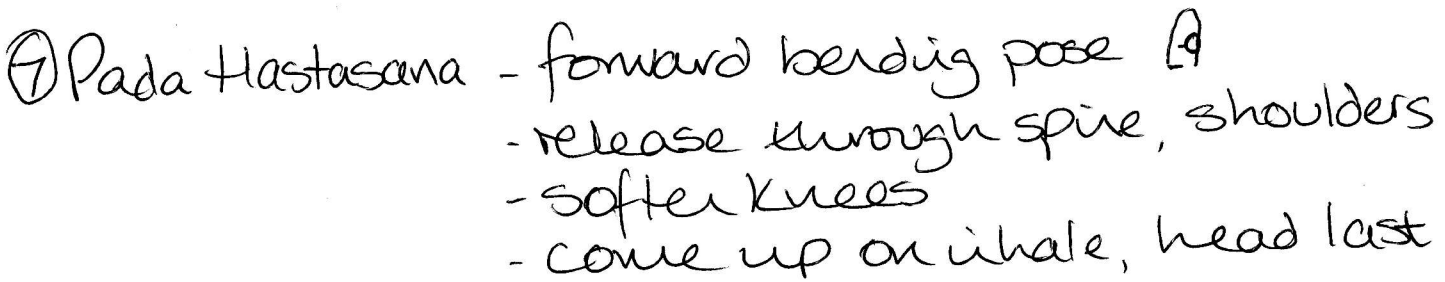 ⑦ Pada Hastasana - forward bending pose
- release through spine, shoulders
- soften knees
- come up on inhale, head last